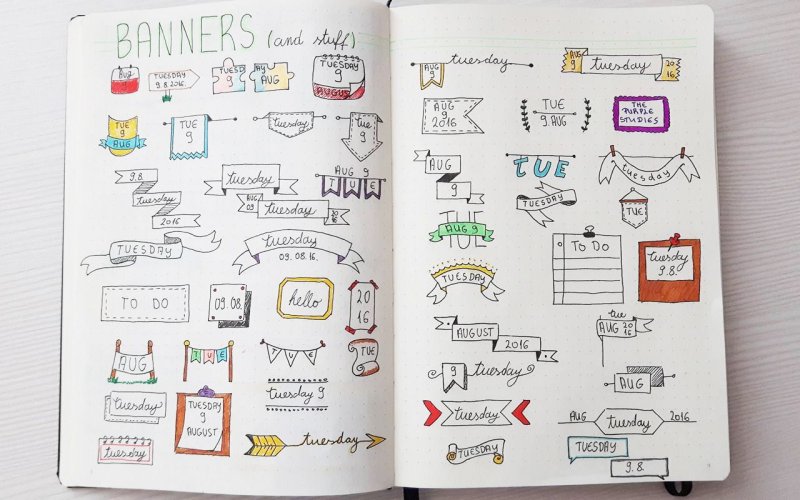 BANNERS (and stuff)
AUG
TUESDAY
9.8.2016.
TUESDAY
9 AUG
TUESDAY
9
AUGUST
TUE
9
AUG
TUE
9
tuesday
tue
9
AUG
9.8.
tuesday
2016
tuesday
AUG 9
TUE
AUG
09
tuesday
2016
TUESDAY
tuesday
09.08.16.
TO DO
09.08.
hello
20
16
AUG
TUE
TUE
TUE
tuesday
TUESDAY
9
AUGUST
tuesday 9
tuesday
tuesday
AUG
9
tuesday
AUG
9
tuesday
20
16
AUG
9
2016
TUE
9.AUG
THE
PURPLE
STUDIES
AUG
9
TUE
TUESDAY
tuesday
TUE
TUE
AUG 9
TO DO
tuesday
9.8.
TUESDAY
AUGUST
2016
tue
AUG 20
16
9
tuesday
AUG
tuesday
AUG
tuesday
2016
TUESDAY
TUESDAY
9.8.